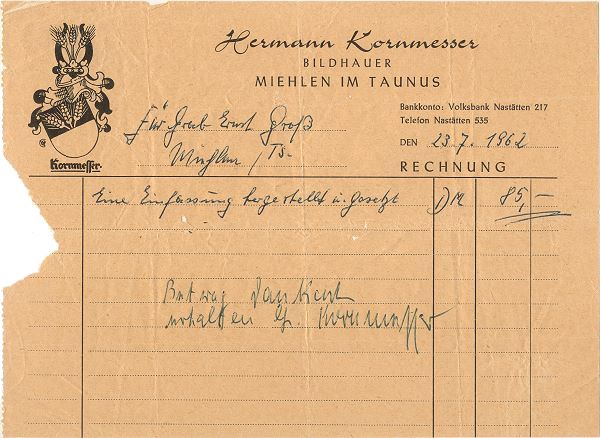 Hermann Kornmesser
BILDHAUER
MIEHLEN IM TAUNUS
Bankkonto: Volksbank Nastätten 217
Telefon Nastätten 535
Kornmesser
Für Grab Ernst Groß
Miehlen / Ts.
DEN 23.7.1962
RECHNUNG
Eine Einfassung hergestellt u. gesetzt DM 85,—
Betrag dankend
erhalten H. Kornmesser